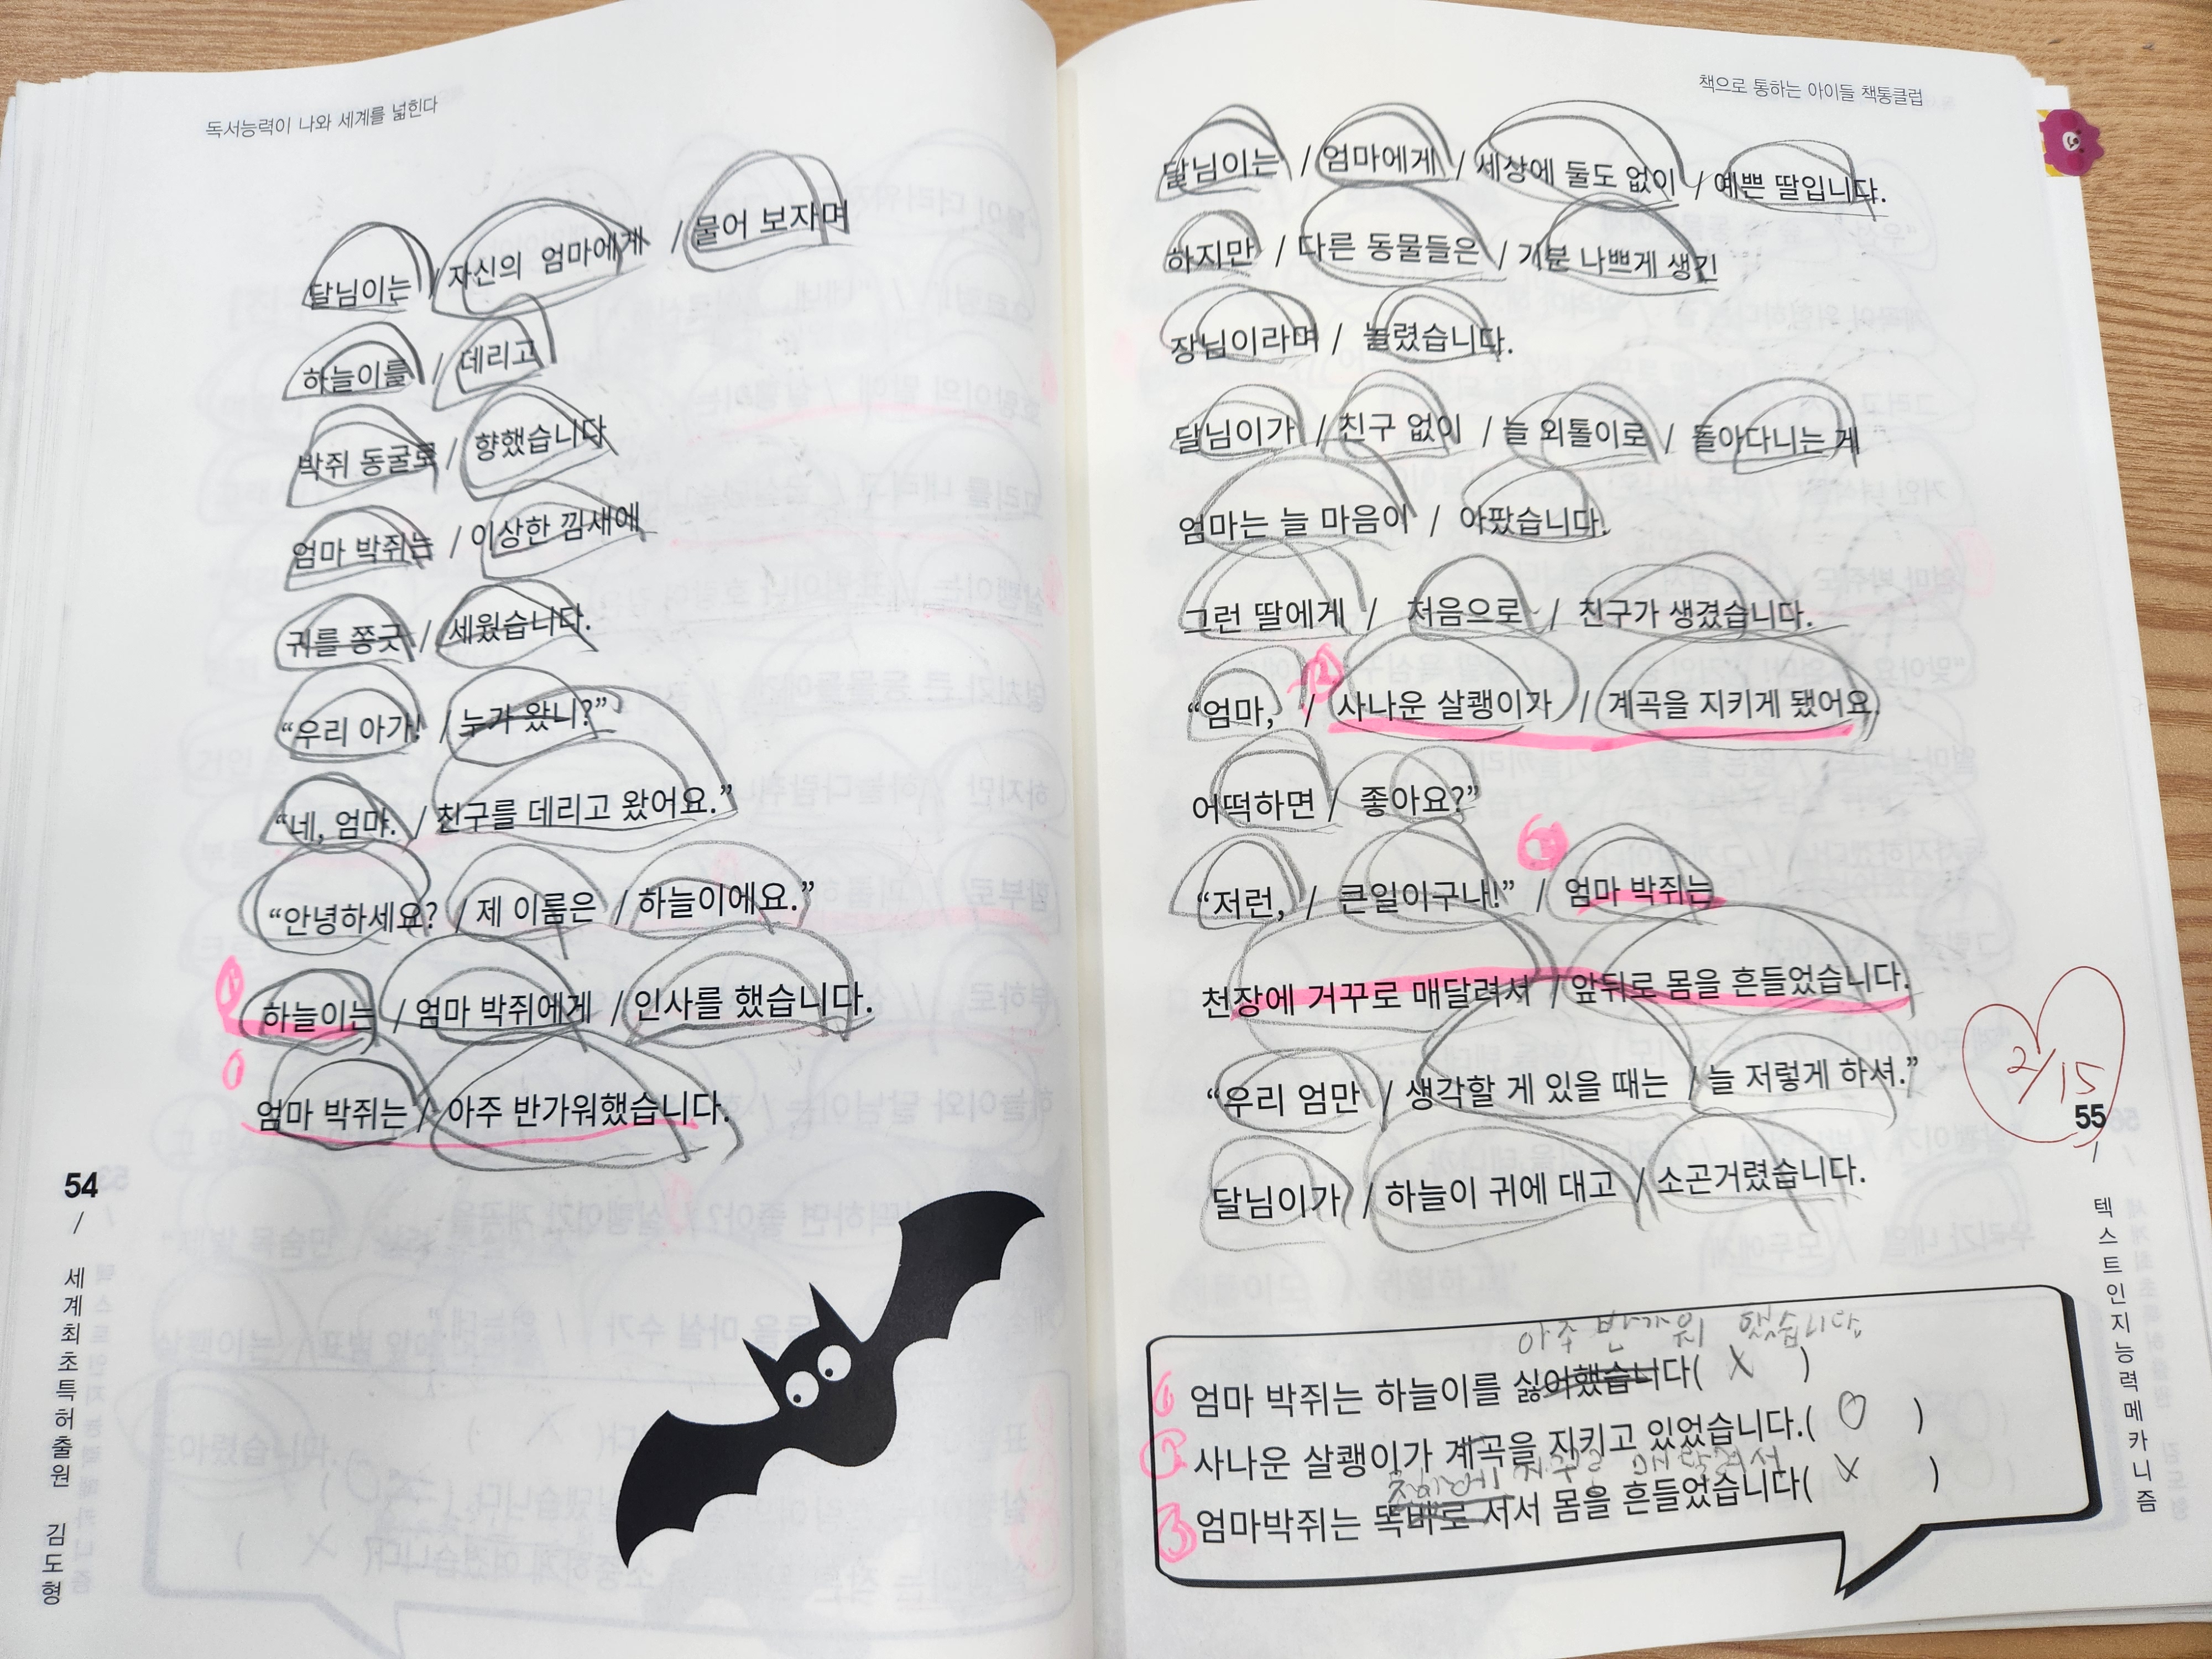 독서능력이 나와 세계를 넓힌다
달님이는 / 자신의 엄마에게 / 물어 보자며
하늘이를 / 데리고
박쥐 동굴로 / 향했습니다
엄마 박쥐는 / 이상한 낌새에
귀를 쫑긋 / 세웠습니다.
“우리 아가! / 누가 왔니?”
“네, 엄마. / 친구를 데리고 왔어요.”
“안녕하세요? / 제 이름은 / 하늘이에요.”
하늘이는 / 엄마 박쥐에게 / 인사를 했습니다.
엄마 박쥐는 / 아주 반가워했습니다.
54 / 세계최초특허출원 김도형
책으로 통하는 아이들 책통클럽
달님이는 / 엄마에게 / 세상에 둘도 없이 / 예쁜 딸입니다.
하지만 / 다른 동물들은 / 기분 나쁘게 생긴
장님이라며 / 놀렸습니다.
달님이가 / 친구 없이 / 늘 외톨이로 / 돌아다니는 게
엄마는 늘 마음이 / 아팠습니다.
그런 딸에게 / 처음으로 / 친구가 생겼습니다.
“엄마, / 2 사나운 살쾡이가 / 계곡을 지키게 됐어요.
어떡하면 / 좋아요?”
“저런, / 큰일이구나!” / 엄마 박쥐는
천장에 거꾸로 매달려서 / 앞뒤로 몸을 흔들었습니다.
“우리 엄만 / 생각할 게 있을 때는 / 늘 저렇게 하셔.”
달님이가 / 하늘이 귀에 대고 / 소곤거렸습니다.
2/15
55 / 텍스트인지능력메카니즘
아주 반가워 했습니다
1 엄마 박쥐는 하늘이를 싫어했습니다( X )
2 사나운 살쾡이가 계곡을 지키고 있었습니다.( O )
거꾸로 매달려서
3 엄마박쥐는 똑바로 서서 몸을 흔들었습니다( X )